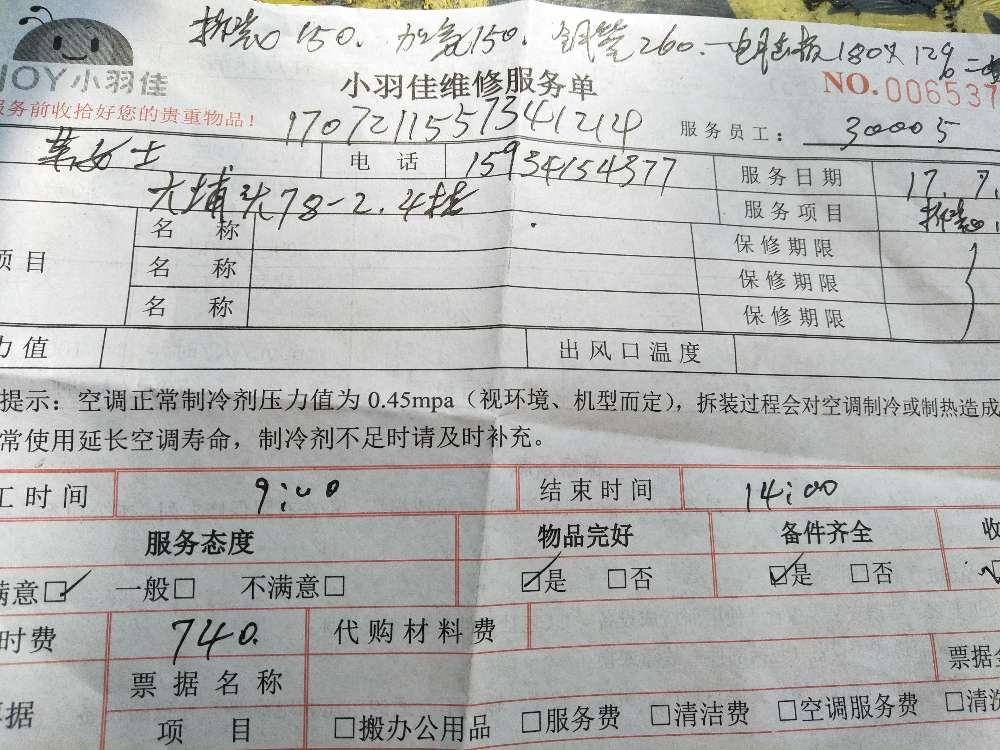 拆装150. 加氟150. 铜管260. 电路板180
JOY小羽佳
小羽佳维修服务单
NO.006537
服务前收拾好您的贵重物品!
1707211557341214
服务员工: 30005
女士
电话 15934154377
服务日期 17.7.
大埔头78-2.4楼
服务项目 拆装.
项目
名称 保修期限
名称 保修期限
名称 保修期限
力值 出风口温度
提示:空调正常制冷剂压力值为0.45mpa(视环境、机型而定),拆装过程会对空调制冷或制热造成
常使用延长空调寿命,制冷剂不足时请及时补充。
工时间 9:00 结束时间 14:00
服务态度 物品完好 备件齐全 收
满意☑ 一般□ 不满意□ ☑是 □否 ☑是 □否
时费 740. 代购材料费
票据名称 票据金
票据 项目 □搬办公用品 □服务费 □清洁费 □空调服务费 □清洗